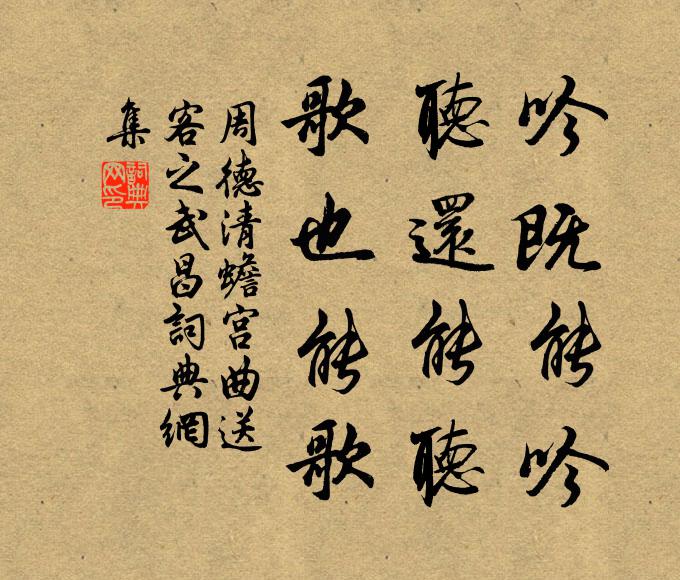 吟既能吟
聽還能聽
歌也能歌
周德清蟾宮曲送
客之武昌詞典網
集
詞典
网印